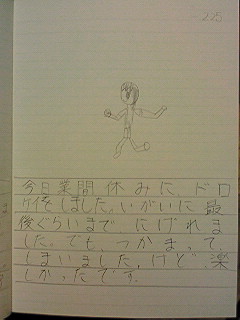 225
今日業間休みに、ドロ
ケイをしました。いがいに最
後ぐらいまでにげれま
した。でも、つかまって
しまいました。けど、楽
しかったです。